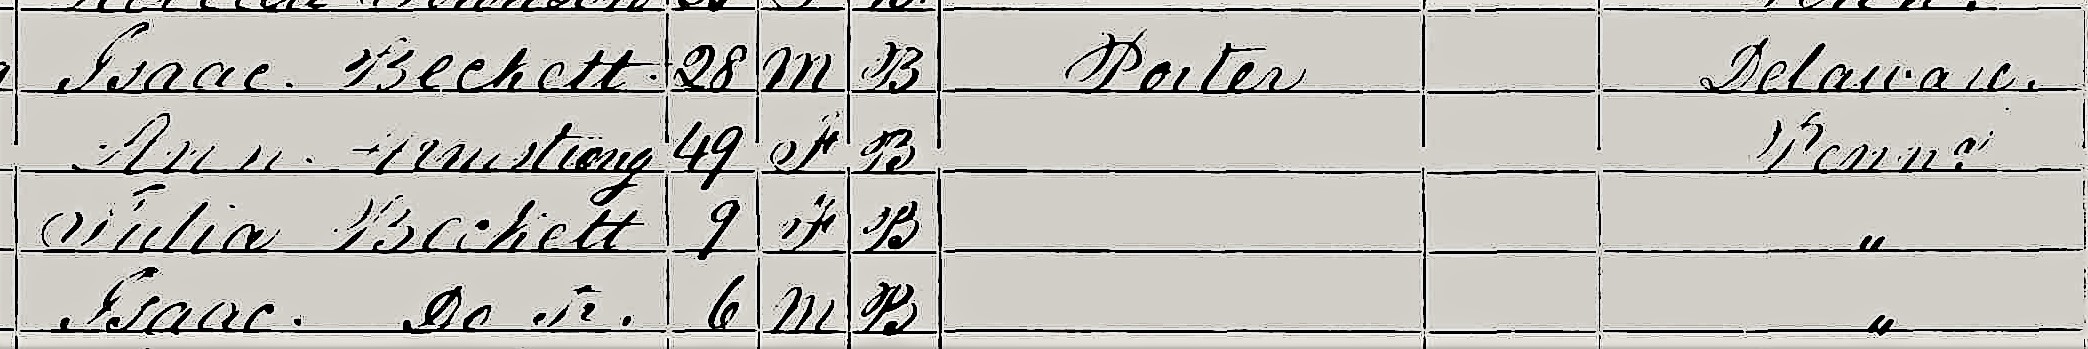 Isaac. Beckett. 28 M B Porter Delaware.
Ann. Armstrong 49 F B Penna
Julia Beckett 9 F B "
Isaac. Do Jr. 6 M B "